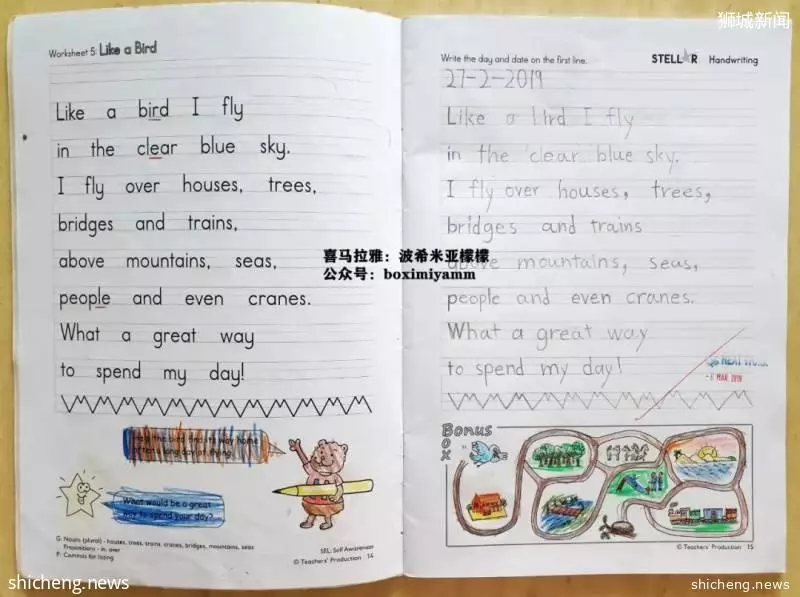 狮城新闻
Worksheet 5: Like a Bird
Like a bird I fly
in the clear blue sky.
I fly over houses, trees,
bridges and trains,
above mountains, seas,
people and even cranes.
What a great way
to spend my day!
Help the bird find its way home
after a long day of flying.
What would be a great
way to spend your day?
G: Nouns (plural) - houses, trees, trains, cranes, bridges, mountains, seas
Prepositions - in, over
P: Commas for listing
SEL: Self Awareness
© Teachers' Production 14
Write the day and date on the first line.
STELLAR Handwriting
27-2-2019
Like a bird I fly
in the clear blue sky.
I fly over houses, trees,
bridges and trains
above mountains, seas,
people and even cranes.
What a great way
to spend my day!
NEAT WORK
- 6 MAR 2019
Bonus
BOX
© Teachers' Production 15
喜马拉雅：波希米亚檬檬
公众号：boximiyamm
shicheng.news
shicheng.news